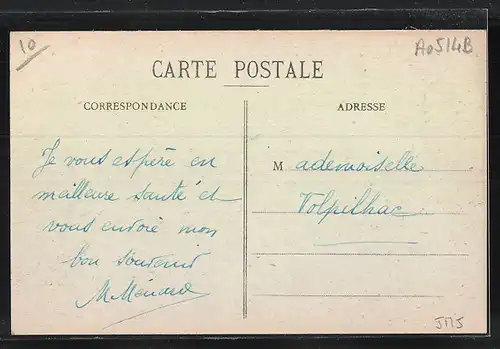 10
A0514B
CARTE POSTALE
CORRESPONDANCE
Je vous espère en
meilleure santé et
vous envoie mon
bon souvenir
M Ménard
ADRESSE
Mademoiselle
Volpilhac